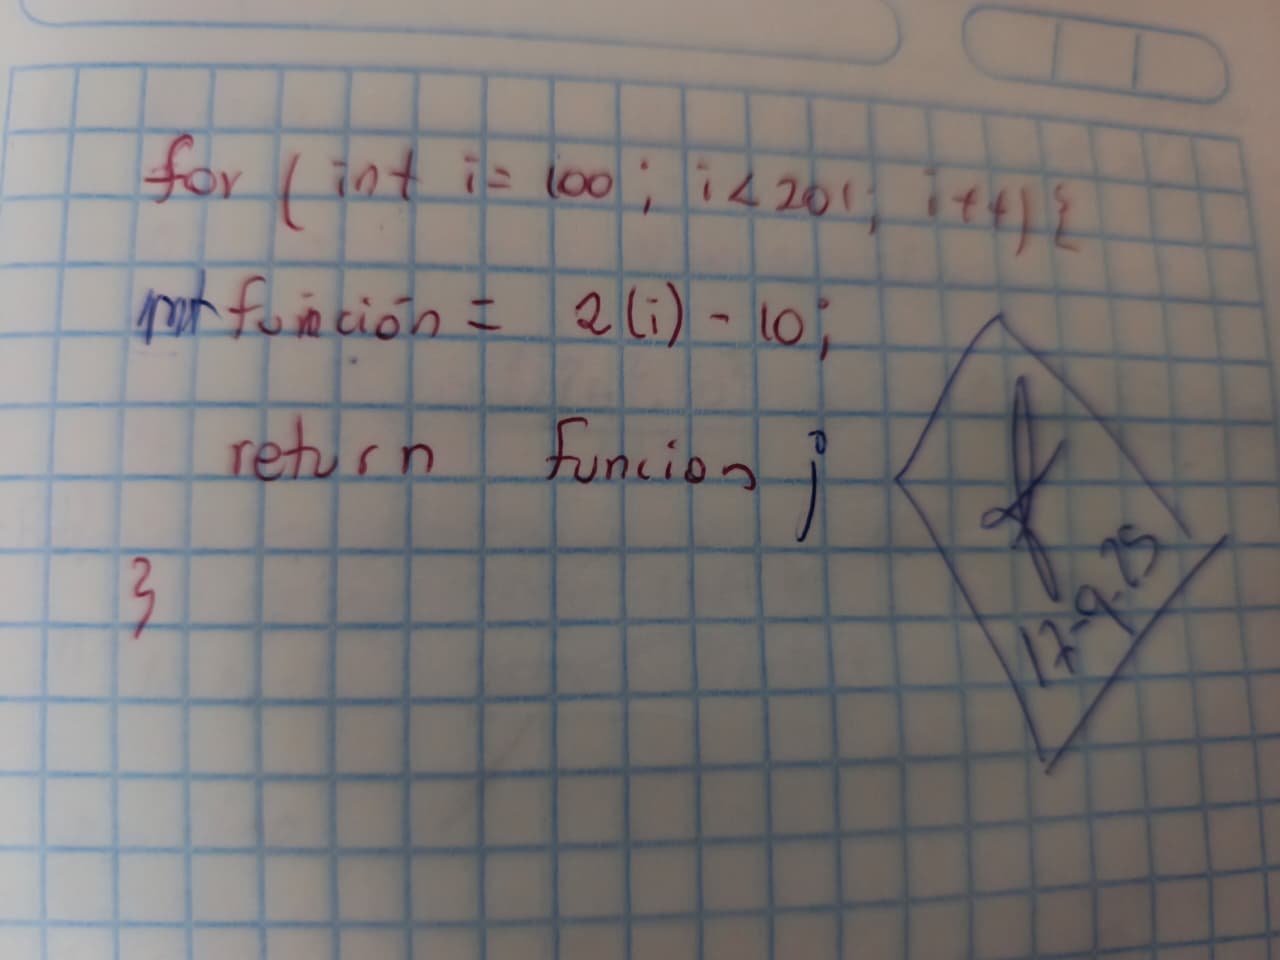 for (int i = 100; i < 201; i++) {
int función = 2(i) - 10;
return funcion;
}
17-9-25